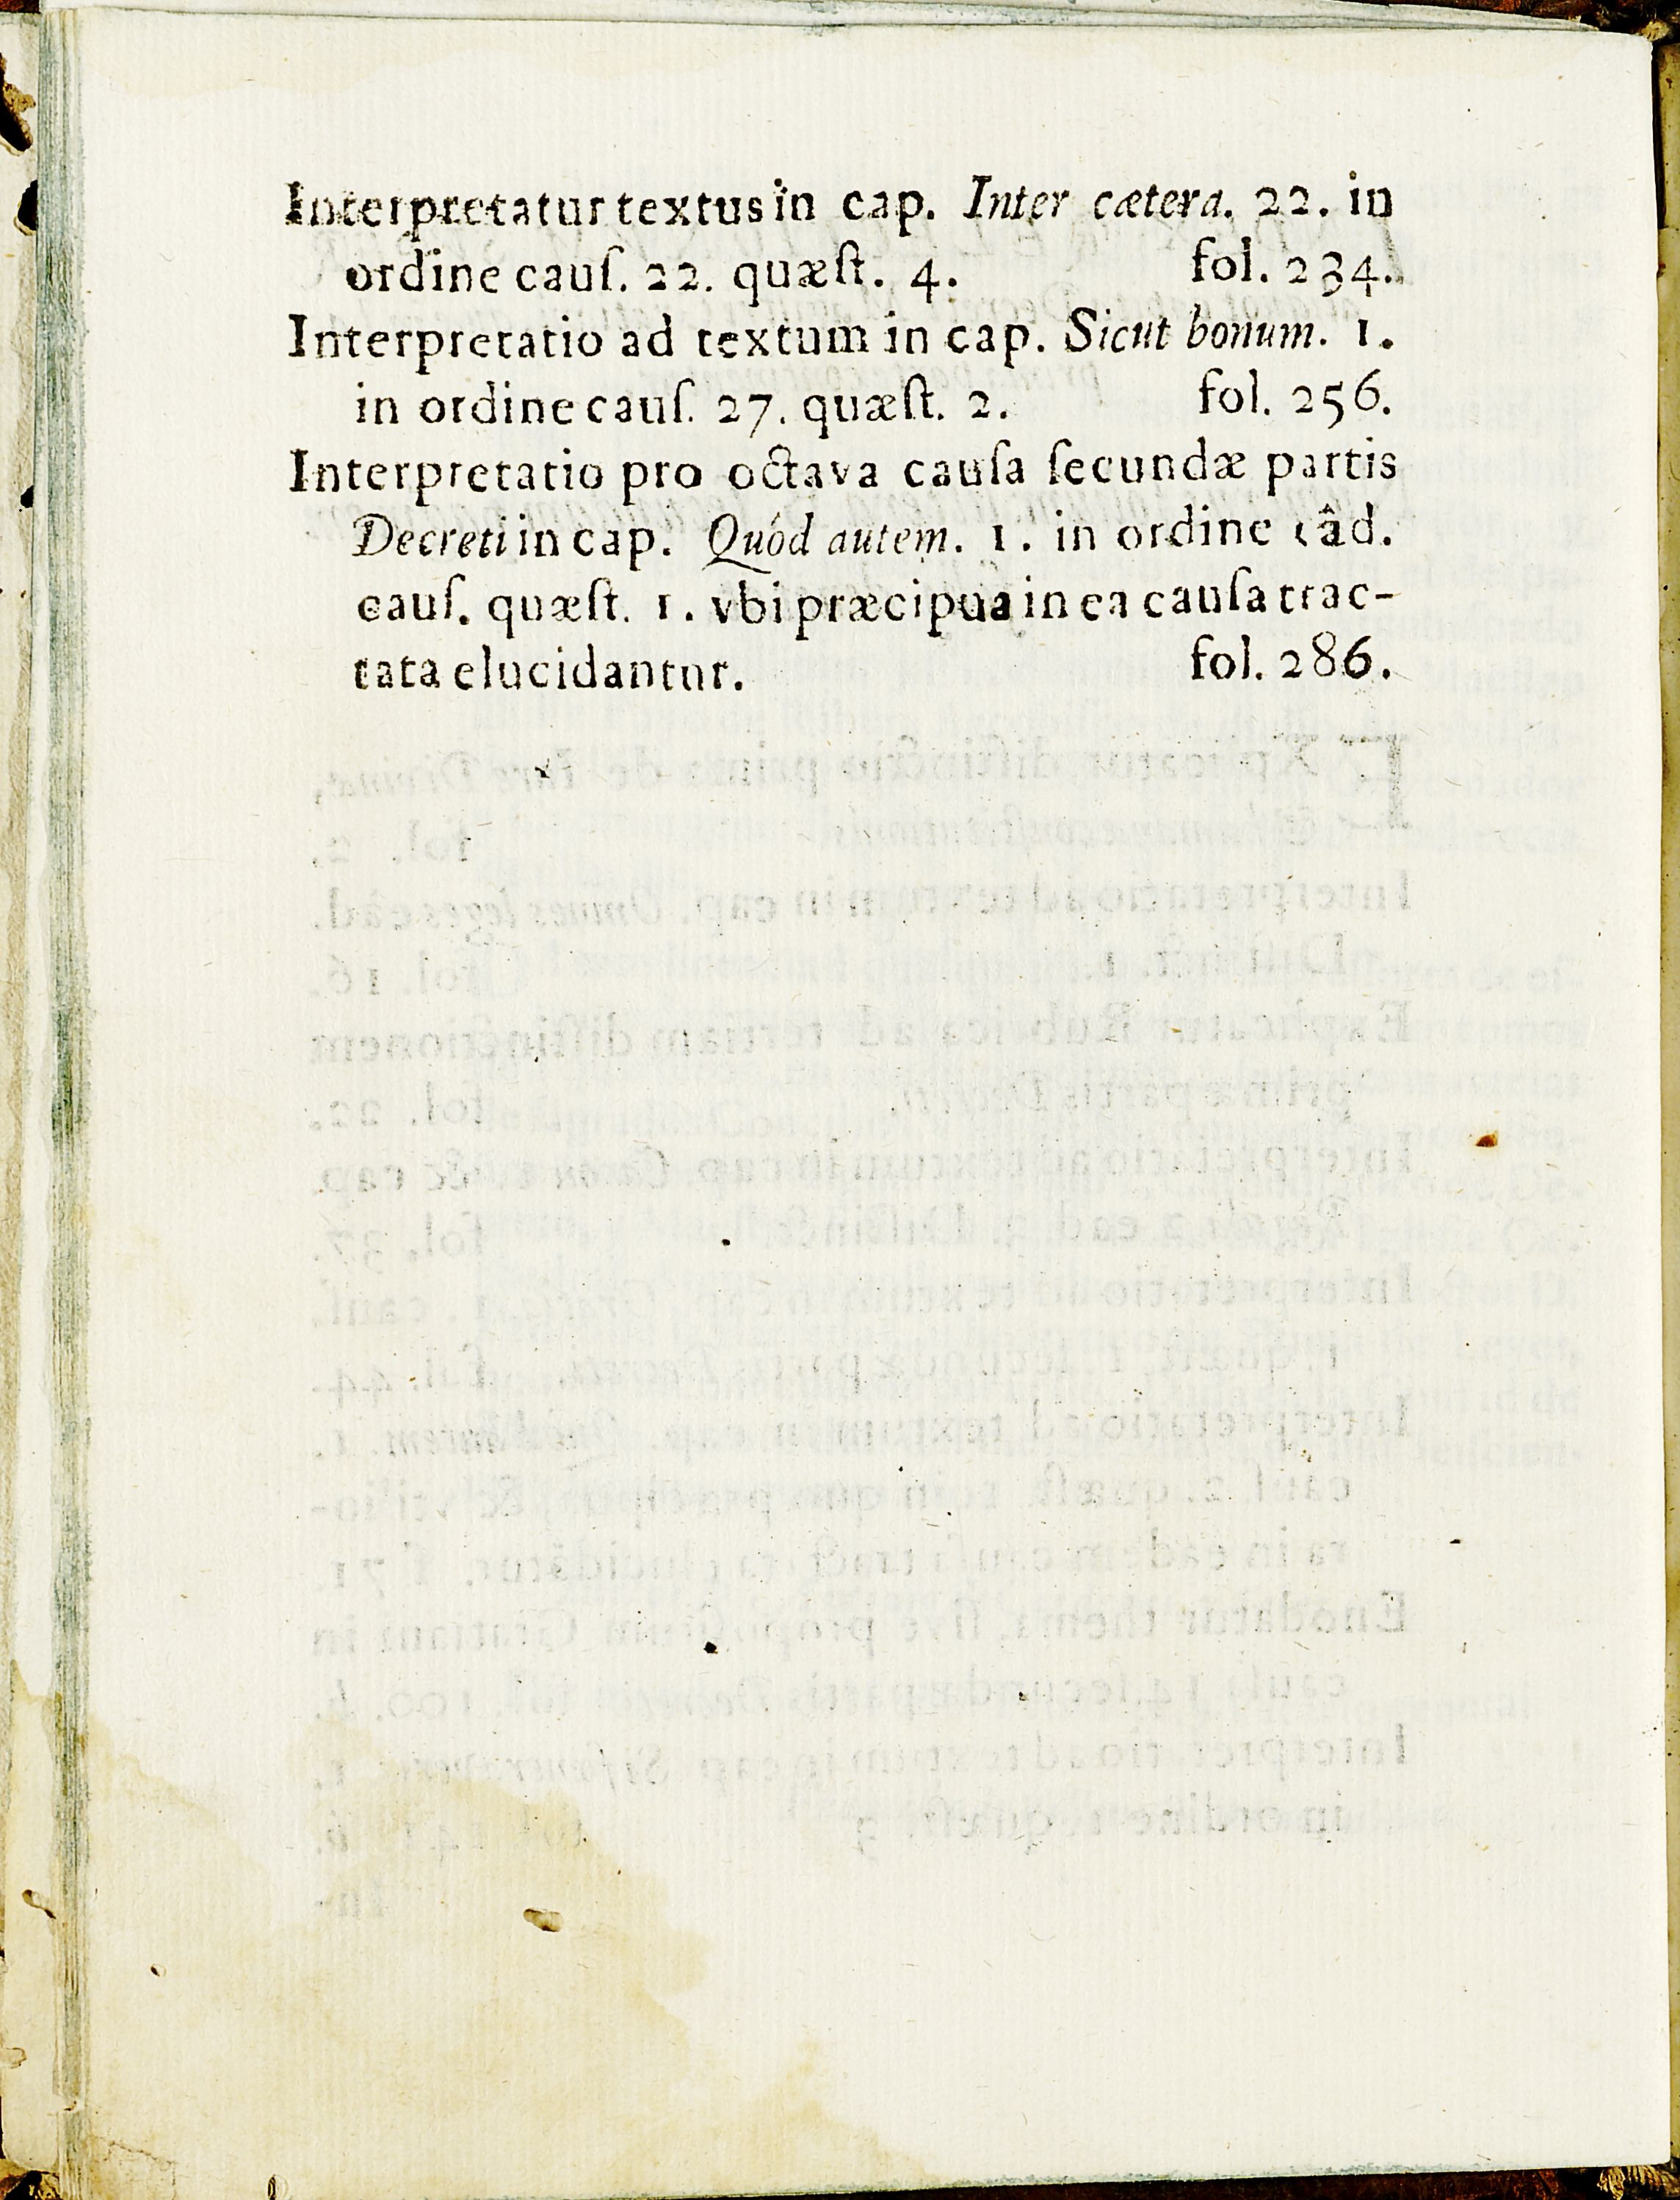 Interpretatur textus in cap. Inter cætera. 22. in
ordine cauſ. 22. quæſt. 4. fol. 234.
Interpretatio ad textum in cap. Sicut bonum. 1.
in ordine cauſ. 27. quæſt. 2. fol. 256.
Interpretatio pro octava cauſa ſecundæ partis
Decreti in cap. Quód autem. 1. in ordine eâd.
cauſ. quæſt. 1. vbi præcipua in ea cauſa trac-
tata elucidantur. fol. 286.